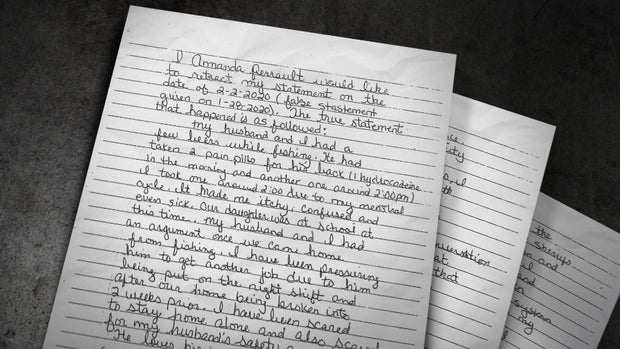 I Amanda Perrault would like
to retract my statement on the
date of 2-2-2020 (false stastement
given on 1-28-2020). The true statement
that happened is as followed:
my husband and I had a
few beers while fishing. He had
taken 2 pain pills for his back (1 hydrocodeine
in the morning and another one around 2:00pm)
I took me around 2:00 due to my menstral
cycle. It made me itchy, confused and
even sick. Our daughter was at school at
this time. My husband and I had
an argument once we came home
from fishing. I have been pressuring
him to get another job due to him
being put on the night shift and
after our home being broken into
2 weeks prior. I have been scared
to stay home alone and also scared
for my husband's safety
He loves his
the
sherups
system
my
that
at